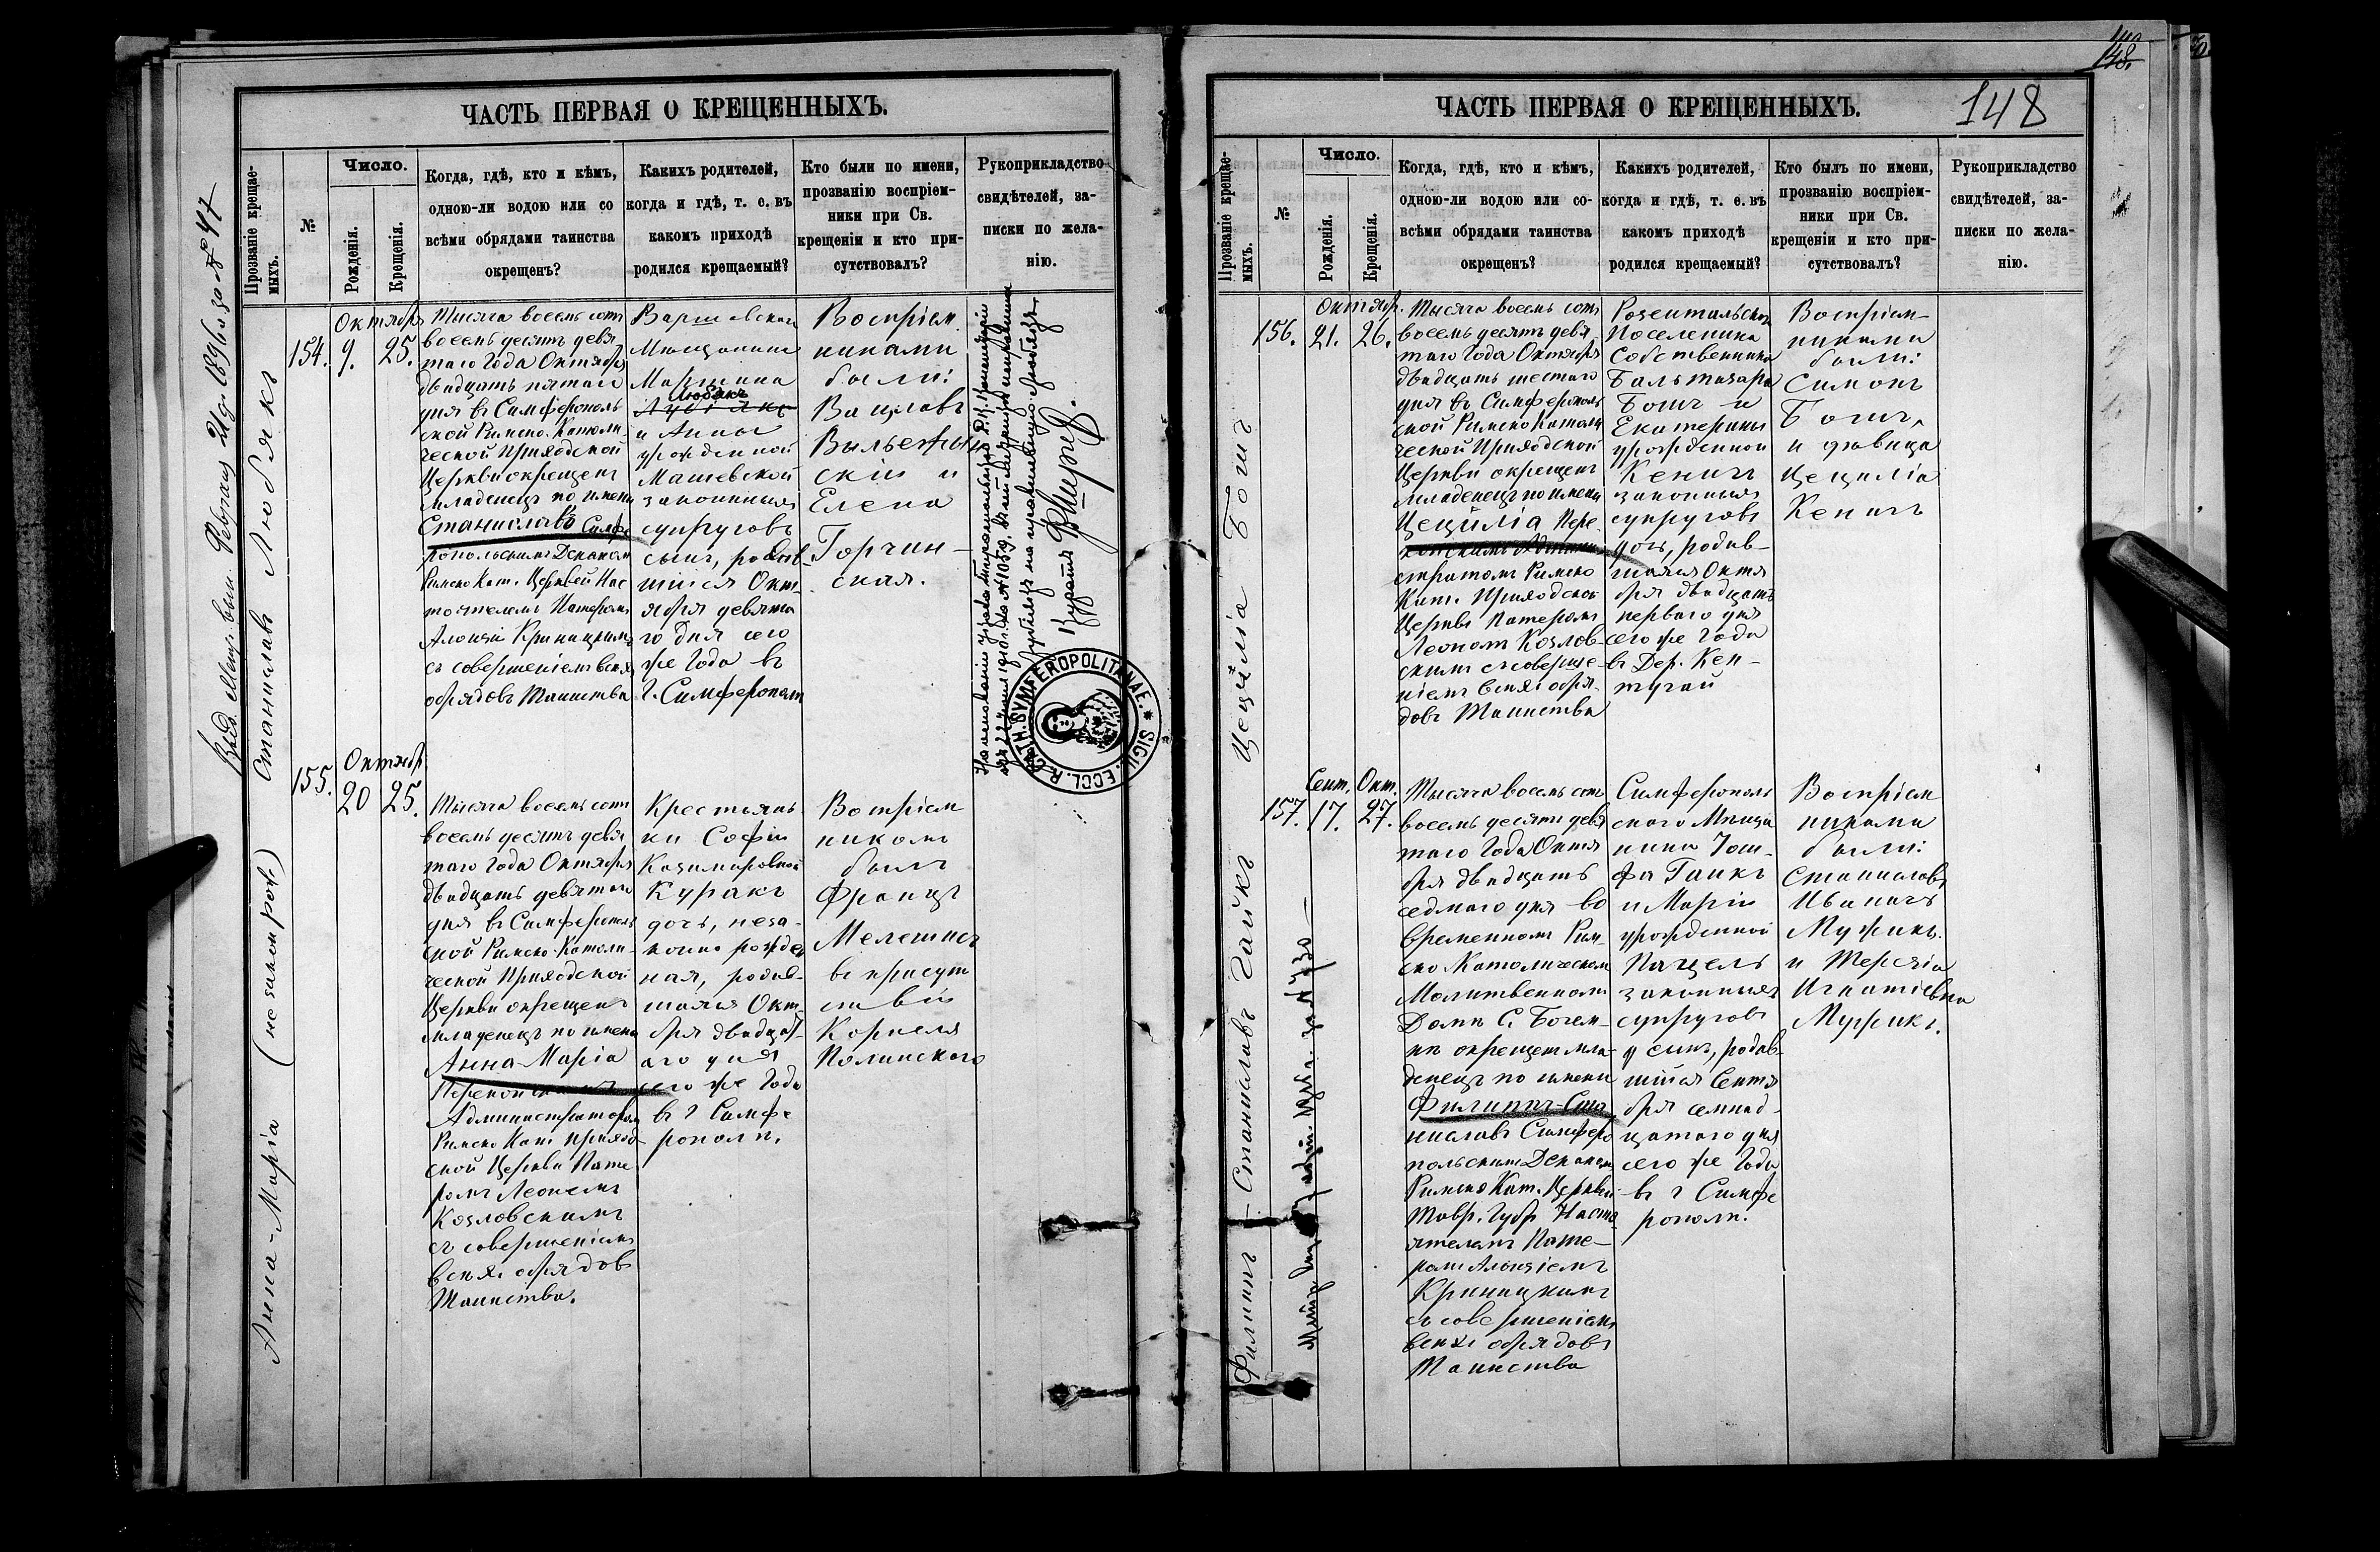 148
148.
ЧАСТЬ ПЕРВАЯ О КРЕЩЕННЫХЪ.
Прозваніе крещае-
мыхъ.
№
Число.
Рожденія.
Крещенія.
Когда, гдѣ, кто и кѣмъ,
одною-ли водою или со
всѣми обрядами таинства
окрещенъ?
Какихъ родителей,
когда и гдѣ, т. е. въ
какомъ приходѣ
родился крещаемый?
Кто были по имени,
прозванію воспріем-
ники при Св.
крещеніи и кто при-
сутствовалъ?
Рукоприкладство
свидѣтелей, за-
писки по жела-
нію.
Станиславъ Люблякъ
154.
Октября
9.
25.
Тысяча восемь сотъ
восемь десятъ девя
таго года Октября
двадцать пятаго
дня въ Симферополь
ской Римско-Католи-
ческой Приходской
Церкви окрещенъ
младенецъ по имени
Станиславъ Симфе
ропольскимъ Деканом
Римско Кат. Церквей Нас
тоятелемъ Патеромъ
Алоизіи Криницкимъ
съ совершеніемъ всѣхъ
обрядовъ Таинства
Варшавскаго
Мѣщанина
Мартина
и Анны
урожденной
Машевской
законныхъ
супруговъ
сынъ, родив-
шійся Окт-
ября девята
го дня сего
же года въ
г. Симферополѣ
Воспріем
никами
были:
Вацлавъ
скій и
Елена
Горчин-
ская.
ECCL. R. CATH. SYMFEROPOLITANAE. * SIGIL.
Анна-Марія (не законно рож.)
155.
Октябр
20
25.
Тысяча восемь сотъ
восемь десятъ девя
таго года Октября
двадцать девятаго
дня въ Симферополь
ской Римско-Католи-
ческой Приходской
Церкви окрещенъ
младенецъ по имени
Анна-Марія
Администраторомъ
Римско Кат. приход
ской Церкви Пате
ромъ Леономъ
Козловскимъ
съ совершеніемъ
всѣхъ обрядовъ
Таинства.
Крестьян
ки Софіи
Казимировной
Куракъ
дочь, неза-
конно рожден
ная, родив-
шаяся Окт-
бря двадцат-
аго дня
сего же года
въ г Симфе
рополѣ.
Воспріем
никомъ
былъ
Францъ
въ присут
ствіи
Корнеля
Полинскаго
ЧАСТЬ ПЕРВАЯ О КРЕЩЕННЫХЪ.
148
Прозваніе крещае-
мыхъ.
№
Число.
Рожденія.
Крещенія.
Когда, гдѣ, кто и кѣмъ,
одною-ли водою или со-
всѣми обрядами таинства
окрещенъ?
Какихъ родителей,
когда и гдѣ, т. е. въ
какомъ приходѣ
родился крещаемый?
Кто былъ по имени,
прозванію воспріем-
ники при Св.
крещеніи и кто при-
сутствовалъ?
Рукоприкладство
свидѣтелей, за-
писки по жела-
нію.
Цецилія Бошъ
156.
Октябр.
21.
26.
Тысяча восемь сотъ
восемь десятъ девя
таго года Октября
двадцать шестаго
дня въ Симферополь
ской Римско Католи
ческой Приходской
Церкви окрещенъ
младенецъ по имени
Цецилія Пере-
стратомъ Римско
Кат. Приходской
Церкви Патеромъ
Леономъ Козлов-
скимъ съ соверше-
ніемъ всѣхъ обря-
довъ Таинства
Розентальскаго
Поселенина
Собственника
Бальтазара
Бошъ и
Екатерины
урожденной
Кенигъ
законныхъ
супруговъ
дочь, родив-
шаяся Октя
бря двадцать
перваго дня
сего же года
въ Дер. Кен-
тугай
Воспріем-
никами
были:
Симонъ
Бошъ,
и дѣвица
Цецилія
Кенигъ
Филиппъ-Станиславъ Гайкъ
157.
Сент.
17.
Окт.
27.
Тысяча восемь сотъ
восемь десятъ девя
таго года Октя
бря двадцать
седмаго дня во
временномъ Рим-
ско Католическом
Молитвенномъ
Домѣ С. Богем-
кѣ окрещенъ мла-
денецъ по имени
Филиппъ-Ста
ниславъ Симферо
польскимъ Деканом
Римско Кат. Церквей
Тавр. Губр Насто
ятелемъ Пате-
ромъ Алоизіемъ
Криницкимъ
съ совершеніемъ
всѣхъ обрядовъ
Таинства
Симферополь
скаго Мѣща
нина Іоси-
фа Гайкъ
и Маріи
урожденной
Пацель
законныхъ
супруговъ
сынъ, родив-
шійся Сентя
бря семнад-
цатаго дня
сего же года
въ г Симфе
рополѣ.
Воспріем
никами
были:
Станиславъ
Ивановъ
Мужикъ.
и Терезія
Игнатіевна
Мужикъ.